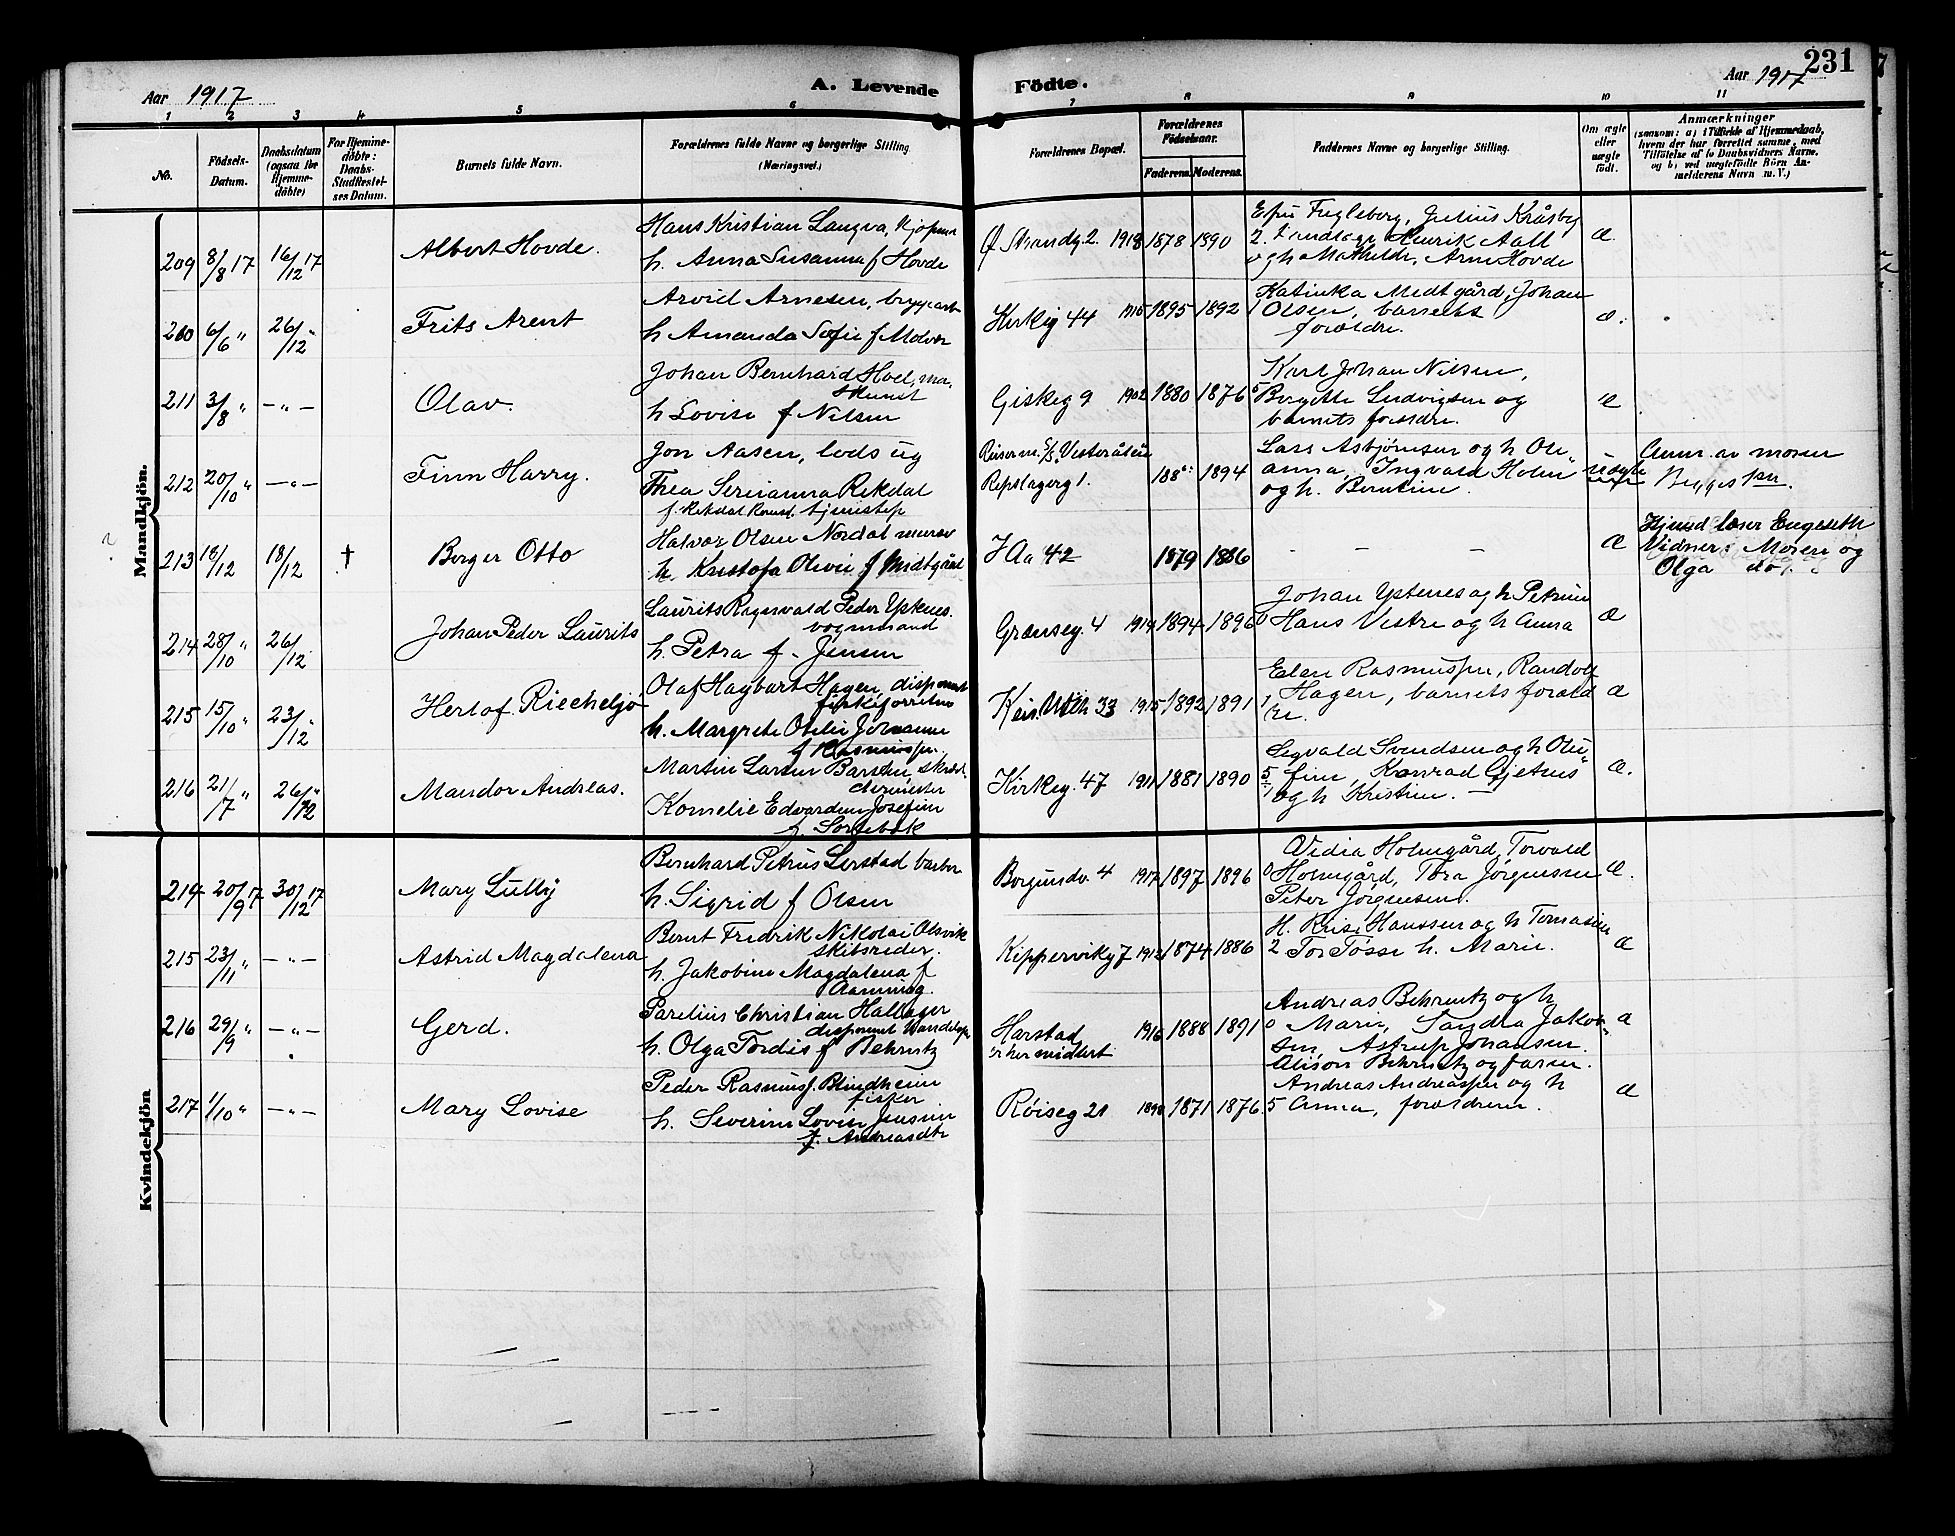 231
Aar 1917
A. Levende
Födte.
Aar 1917
1 2 3 4 5 6 7 8 9 10 11
No.
Födsels-Datum.
Daabsdatum (ogsaa for Hjemmedöbte)
For Hjemmedöbte: Daabs-Stadfæstelses Datum.
Barnets fulde Navn.
Forældrenes fulde Navne og borgerlige Stilling
(Næringsvei.)
Forældrenes Bopæl.
Forældrenes Födselsaar.
Faderens. Moderens.
Faddernes Navne og borgerlige Stilling.
Om ægte eller uægte födt.
Anmærkninger
(saasom: a) i Tilfælde af Hjemmedaab, hvem der har forrettet samme, med Tilföielse af to Daabsvidners Navne, og b) ved uægtefödte Börn Anmelderens Navn m. V.)
Mandkjön.
209 8/8 17 16/12 17 Albert Hovde.
Hans Kristian Langva, kjøpm
h. Anna Susanna f Hovde
Ø Strandg. 2. 1918 1878 1890
Fugleberg, Julius Kråsby
Henrik Aall
og h Mathilde, Arne Hovde
æ.
210 6/6 " 26/12 " Frits Arent
Arvid Arnesen, bryggearb
h Amanda Sofie f Molvær
Kirkeg 44 1915 1895 1892 1
Katinka Medtgård, Johan
Olsen, barnets
forældre.
æ.
211 3/8 " - " - Olav.
Johan Bernhard Hoel, ma.
h Lovise f Nilsen
Giskeg 9 1902 1880 1876 5
Karl Johan Nilsen,
Birgitte Ludvigsen og
barnets forældre.
æ
212 20/10 " - " - Finn Harry.
Jon Aasen, lods ug
Thea Serianna Rekdal
f. Rekdal Romsd. tjenestep
Reiser m. D/S. Vesterålen
Repslagerg 1. 1894
Lars Asbjørnsen og h Ole-
anna, Ingvald Holm
og h. Berntine.
uægte
Anm. av moren
Begges 1ste.
213 18/12 18/12 † Borger Otto
Halvor Olsen Nordal murer
h. Kristofa Olivie f Midtgård
J Aa 42 1879 1886
- - -
Æ
Hjmd læser Engeseth
Vidner: Moren og
Olga do.
214 28/10 " 26/12. Johan Peder Laurits
Laurits Ragnvald Peder Ystenes.
vognmand
h. Petra f. Jensen
Grænseg. 4 1914 1894 1896 0
Johan Ystenes og h Petrine
Hans Vestre og h Anna
æ
215 15/10 " 23/12 " Herlof Riecheljø
Olaf Hagbart Hagen, disponent
fiskeforretn
h. Margrete Otelie Johanne
f Rasmussen.
Keis. Wilh 33 1915 1892 1891 1
Elen Rasmussen, Randolf
Hagen, barnets foræld
re.
æ
216 21/7 " 26/12 " Mandor Andreas.
Martin Larsen Barsten, skræd-
dermester
Kornelie Edvardine Josefine
f. Sortebak
Kirkeg. 47 1911 1881 1890 5
Sigvald Svendsen og h Oli-
fine, Konrad Gjetnes
og h Kristine. —
æ.
Kvindekjön
214 20/9 17 30/12 17 Mary Lully
Bernhard Petrus Lerstad barber
h. Sigrid f Olsen
Borgundv. 4 1917 1897 1896 0
Vidia Holmgård, Torvald
Holmgård, Tora Jørgensen
Peter Jørgensen.
æ.
215 23/11 " - " - Astrid Magdalena
Bernt Fredrik Nikolai Olsvik
skibsreder.
h. Jakobine Magdalena f
Aamning.
Kipperviky 7 1912 1874 1886 2
H. Kris. Hanssen og h Tomasine
Tor Tøsse h. Marie.
æ
216 29/9 " - " - Gerd.
Parelius Christian Hallager
disponent Handelsp
h. Olga Tordis f Behrentz
Harstad
er her midlert 1916 1888 1891 0
Andreas Behrentz og h
Marie, Sandra Jakob-
sen, Astrup Johansen.
Alison Behrentz og faren.
æ
217 1/10 " - " - Mary Lovise
Peder Rasmus P. Blindheim
fisker
h. Severine Lovise Jensine
f. Andreasdtr
Røiseg 21 1898 1871 1876 5
Andreas Andreassen og h
Anna, forældrene.
æ